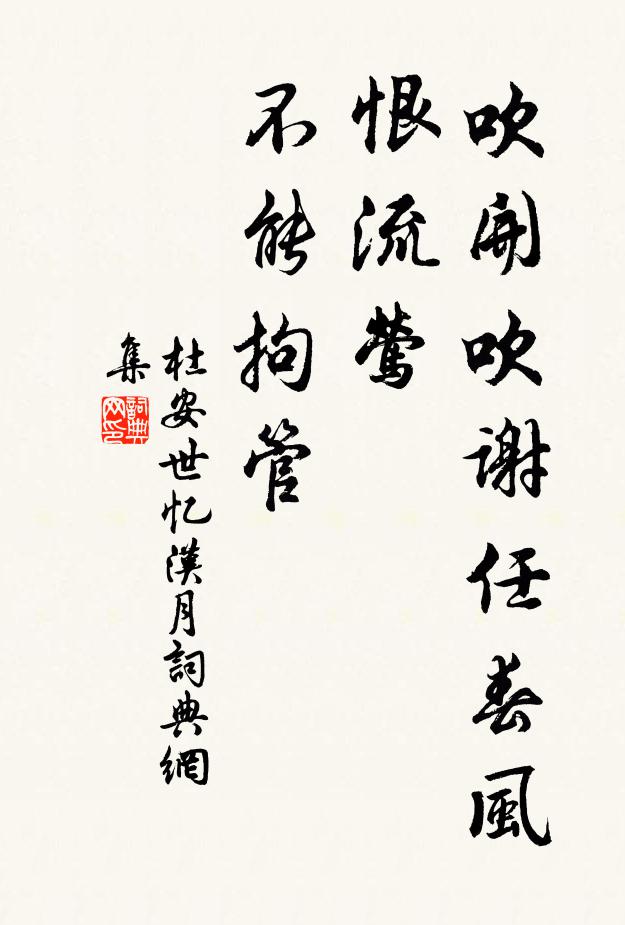 吹開吹謝任春風
恨流鶯
不能拘管
杜安世忆漢月詞典網
集
詞典
网印